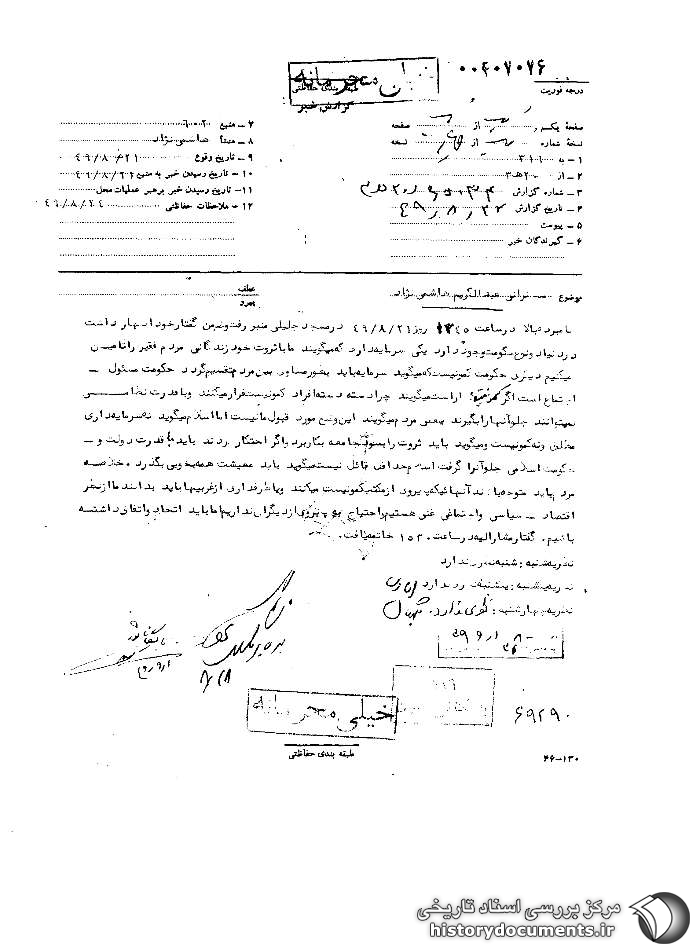 ۰۰۴۰۷۰۷۶
خیلی محرمانه
درجه فوریت
طبقه بندی حفاظتی
گزارش خبر
صفحه یک از صفحه
نسخه شماره از نسخه
۱ – به ۳۱۶
۲ – از ۲۰ هـ ۳
۳ – شماره گزارش
۴ – تاریخ گزارش ۴۹/۸/۲۳
۵ – پیوست
۶ – گیرندگان خبر
۷ – منبع
۸ – منشأ هاشمی نژاد
۹ – تاریخ وقوع ۴۹/۸/۲۱
۱۰ – تاریخ رسیدن خبر به منبع ۴۹/۸/۲۱
۱۱ – تاریخ رسیدن خبر برهبر عملیات محل
۱۲ – ملاحظات حفاظتی ۴۹/۸/۲۴
موضوع سخنرانی عبدالکریم هاشمی نژاد
عطف
پیرو
نامبرده بالا در ساعت ۱۴۴۵ روز ۴۹/۸/۲۱ در مسجد جلیلی منبر رفت و ضمن گفتار خود اظهار داشت
در دنیا دو نوع حکومت وجود دارد یکی سرمایه دارد که میگویند ما با ثروت خود زندگانی مردم فقیر را تأمین
میکنیم دیگری حکومت کمونیست که میگوید سرمایه باید بطور مساوی بین مردم تقسیم گردد حکومت مسئول –
اجتماع است اگر راست میگویند چرا دسته دسته افراد کمونیست فرار میکنند و با قدرت نظامی
نمیتوانند جلو آنها را بگیرند بعضی مردم میگویند این وضع مورد قبول ما نیست اما اسلام میگوید نه سرمایه داری
مطلق و نه کمونیست و میگوید باید ثروت را بسود جامعه بکار برد و اگر احتکار کردند باید با قدرت دولت و –
حکومت اسلامی جلو آنرا گرفت اسلام حد اقل قائل نیست میگوید باید معیشت همه بخوبی بگذرد خلاصه
مردم باید متوجه باشند آنهائیکه پیروی از مکتب کمونیست میکنند و یا طرفداری از غربیها باید بدانند ما از نظر
اقتصاد – سیاسی و اجتماعی غنی هستیم و احتیاج به پیروی از دیگران نداریم اما باید اتحاد و اتفاق داشته
باشیم. گفتار مشارالیه در ساعت ۱۵۳۰ خاتمه یافت.
نظریه شنبه : شنبه نظری ندارد
نظریه یکشنبه : یکشنبه نظری ندارد
نظریه چهارشنبه : نظری ندارد.
۸/۲۸
۳۱۶
۶۹۲۹۰
خیلی محرمانه
طبقه بندی حفاظتی
۴۶-۱۳۰
مرکز بررسی اسناد تاریخی
historydocuments.ir